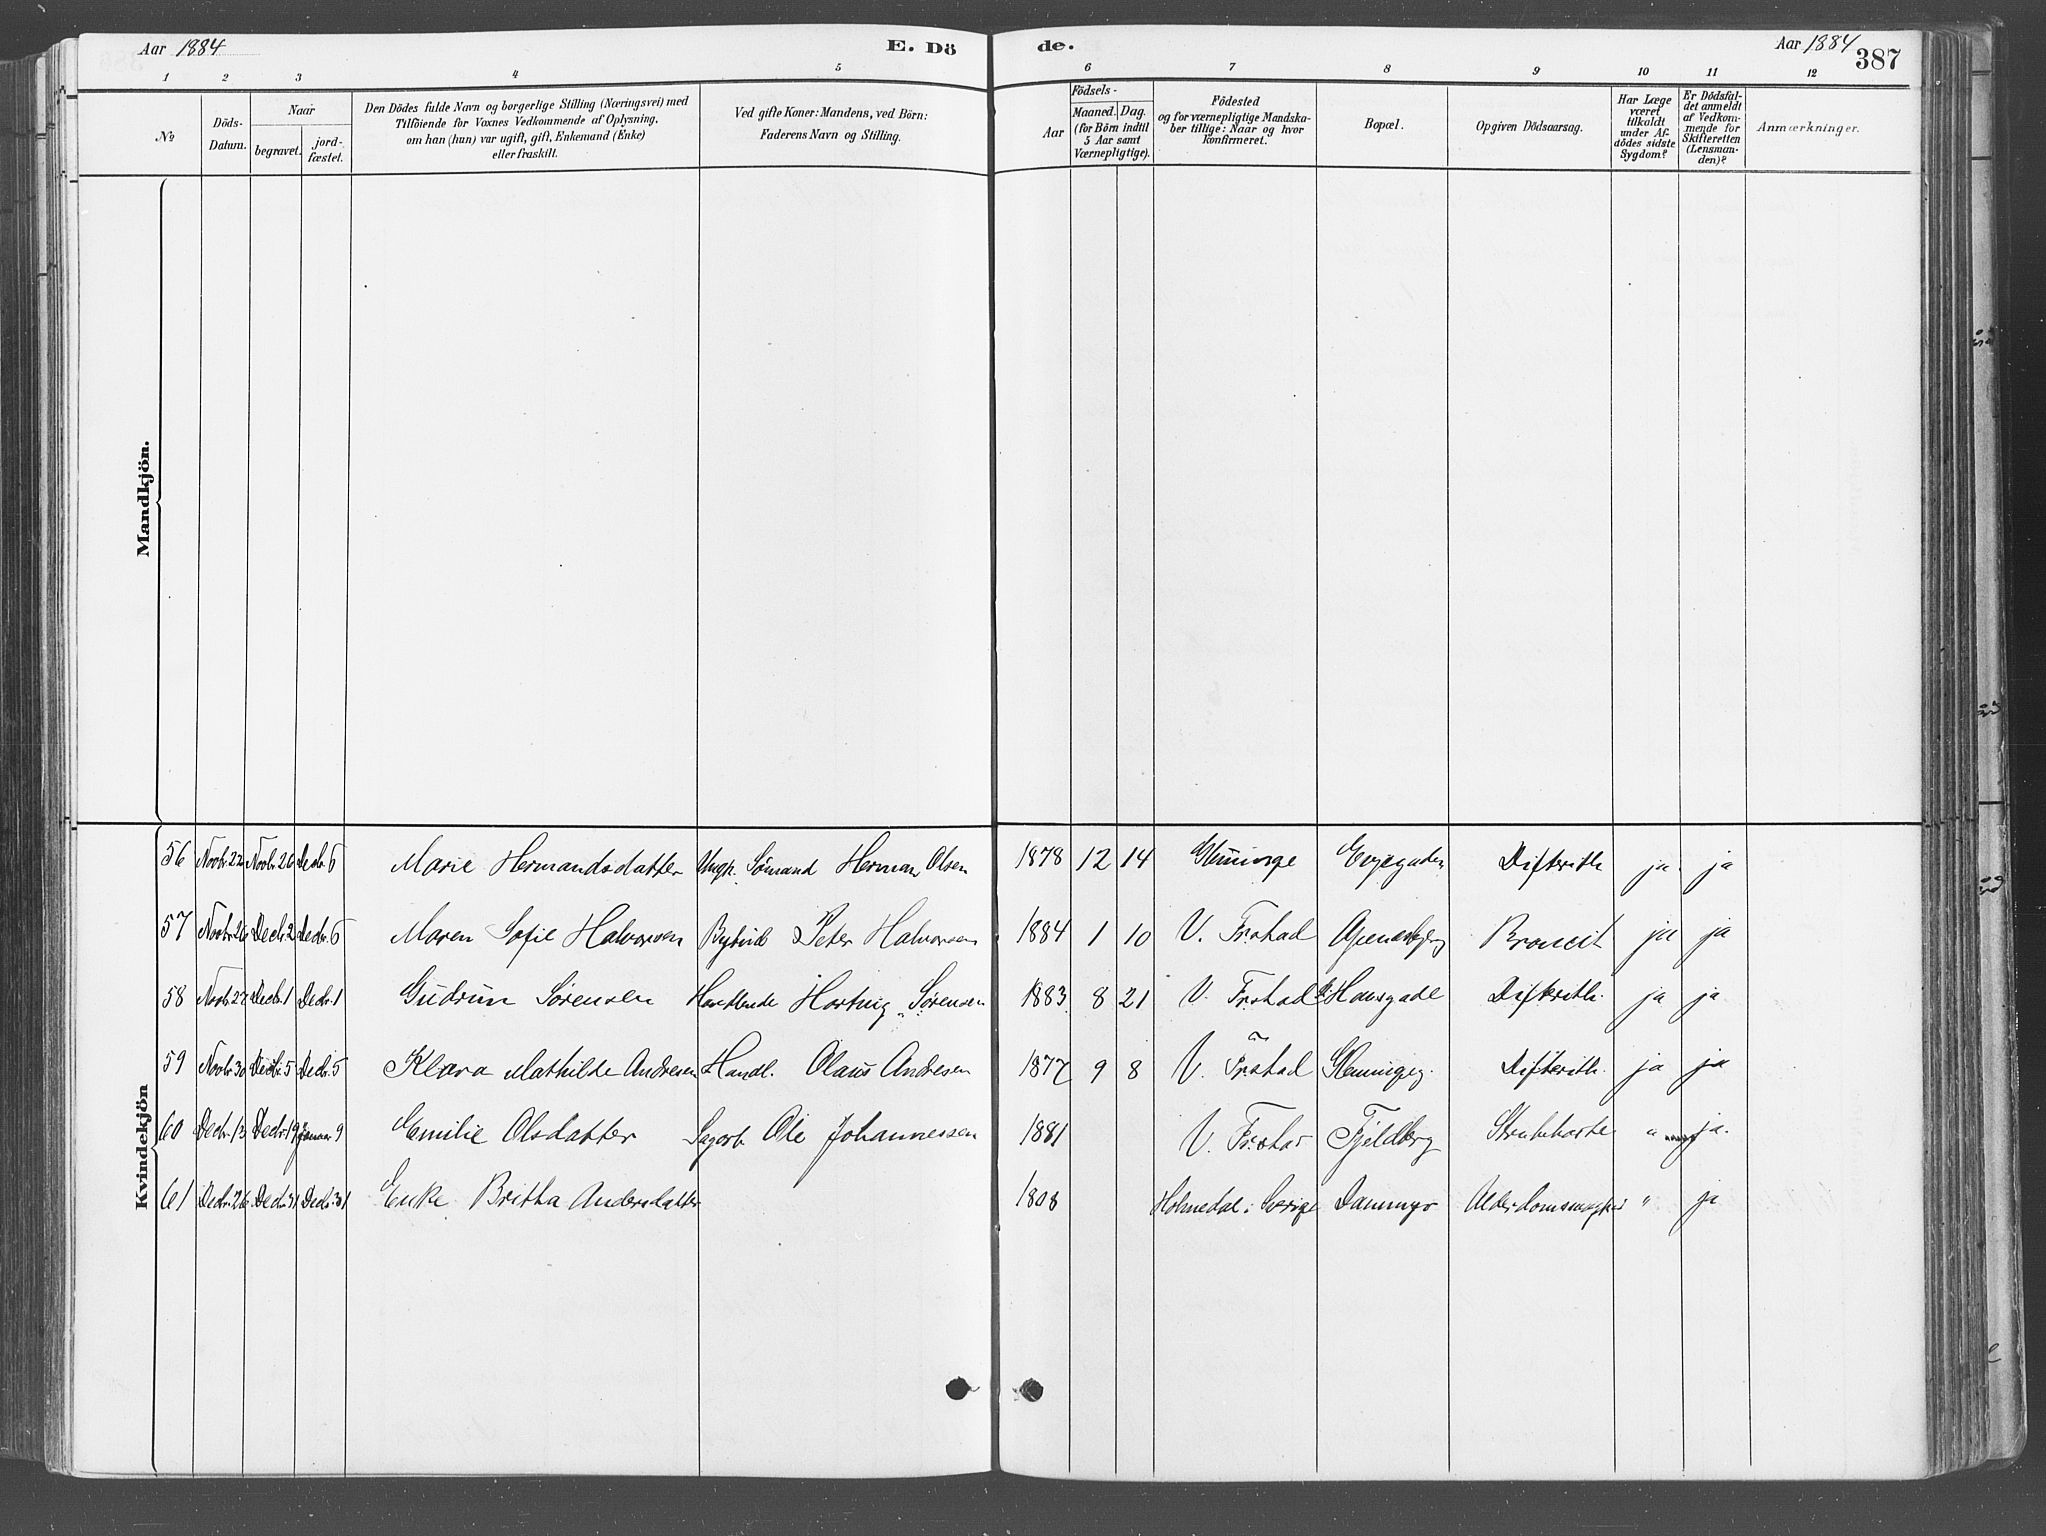 Aar 1884 E. Dö
de. Aar 1884 387
1 2 3 4 5 6 7 8 9 10 11 12
No
Döds-Datum.
Naar
begravet. jord-fæstet.
Den Dödes fulde Navn og borgerlige Stilling (Næringsvei) med
Tilföiende for Voxnes Vedkommende af Oplysning,
om han (hun) var ugift, gift, Enkemand (Enke)
eller fraskilt.
Ved gifte Koner: Mandens, ved Börn:
Faderens Navn og Stilling.
Födsels-
Aar Maaned. Dag.
(for Börn indtil
5 Aar samt
Værnepligtige).
Födested
og for værnepligtige Mandska-
ber tillige: Naar og hvor
konfirmeret.
Bopæl.
Opgiven Dödsaarsag.
Har Læge
været
tilkaldt
under Af-
dödes sidste
Sygdom?
Er Dödsfal-
det anmeldt
af Vedkom-
mende for
Skifteretten
(Lensman-
den)?
Anmærkninger.
Mandkjön.
Kvindekjön
56 Novbr. 22 Novbr. 26 Decbr. 6 Marie Hermandsdatter Ungk. Sömand Herman Olsen 1878 12 14 Glemminge Difterith. ja ja
57 Novbr. 26 Decbr. 2 Decbr. 6 Maren Sofie Halvorsen Peter Halvorsen 1884 1 10 V. Fr.stad Broncit ja ja
58 Novbr. 27 Decbr. 1 Decbr. 1 Gudrun Sørensen Handlende Hartvig Sørensen 1883 8 21 V. Fr.stad Difterith. ja ja
59 Novbr. 30 Decbr. 5 Decbr. 5 Klara Mathilde Andresen Handl. Olaus Andresen 1877 9 8 V. Fr.stad Glemmingeg. Difterith. ja ja
60 Decbr. 13 Decbr. 19 Januar 9 Emilie Olsdatter Sagarb. Ole Johannessen 1881 V. Fr.stad Fjeldberg Strubehoste " ja.
61 Decbr. 26 Decbr. 31 Decbr. 31 Enke Britha Andersdatter 1808 Holmedal i Sverige Dammyr Alderdomssvaghed " ja